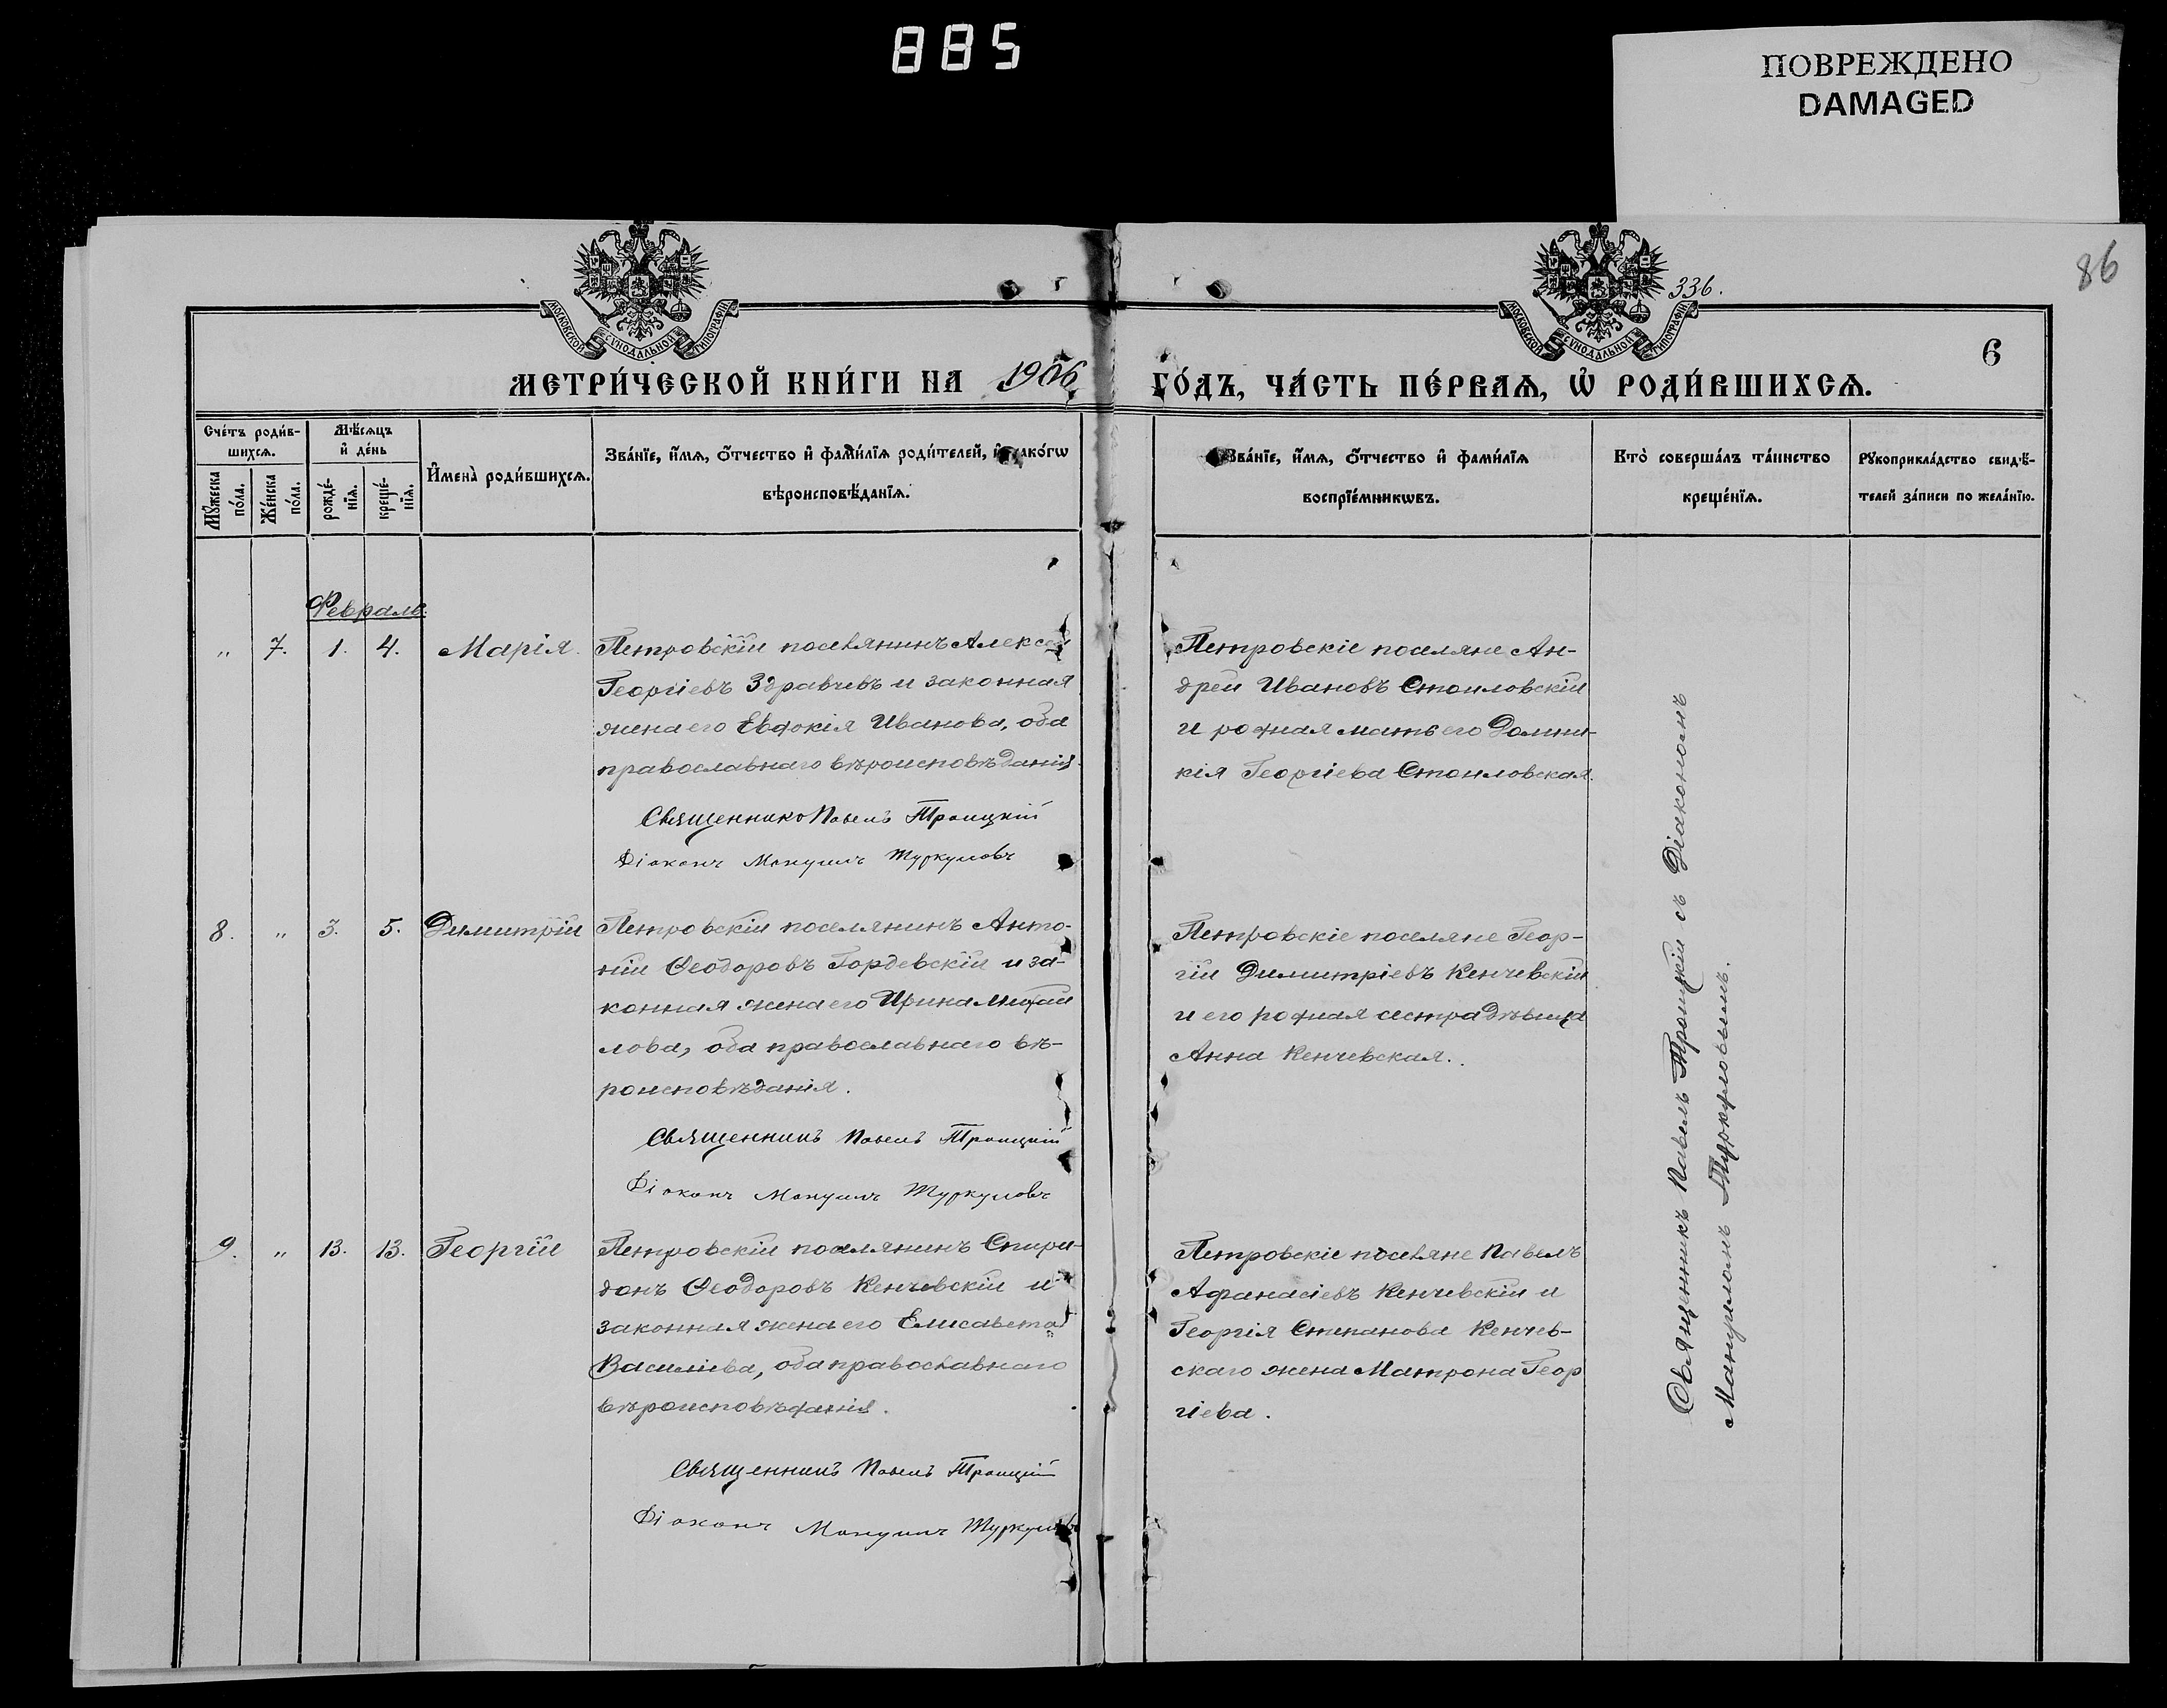 885
ПОВРЕЖДЕНО
DAMAGED
86
336.
6
МОСКОВСКОЙ СѴНОДАЛЬНОЙ ТИПОГРАФІИ
МОСКОВСКОЙ СѴНОДАЛЬНОЙ ТИПОГРАФІИ
МЕТРИ́ЧЕСКОЙ КНИ́ГИ НА 1906 ГО́ДЪ, ЧА́СТЬ ПЕ́РВАѦ, Ѡ҆ РОДИ́ВШИХСѦ.
Сче́тъ роди́в-
шихсѧ.
Мꙋ́жеска
по́ла.
Же́нска
по́ла.
Мѣ́сѧцъ
и҆ де́нь
рожде́-
нїѧ.
креще́-
нїѧ.
И҆мена̀ роди́вшихсѧ.
Зва́нїе, и҆́мѧ, ѻ҆́тчество и҆ фами́лїѧ роди́телей, и҆ како́гѡ
вѣроисповѣ́данїѧ.
Зва́нїе, и҆́мѧ, ѻ҆́тчество и҆ фами́лїѧ
воспрїе́мникѡвъ.
Кто̀ соверша́лъ та́инство
креще́нїѧ.
Рꙋкоприкла́дство свидѣ́-
телей за́писи по жела́нїю.
Февраль.
„ 7. 1. 4. Марія.
Петровскій поселянинъ Алексѣй
Георгіевъ Здравчевъ и законная
жена его Евдокія Иванова, оба
православнаго вѣроисповѣданія.
Священникъ Павелъ Троицкій
Діаконъ Мануилъ Туркуловъ
Петровскіе поселяне Ан-
дрей Ивановъ Стоиловскій
и родная мать его Домни-
кія Георгіева Стоиловская.
8. „ 3. 5. Димитрій
Петровскій поселянинъ Анто-
ній Ѳеодоровъ Гордевскій и за-
конная жена его Ирина Михаи
лова, оба православнаго вѣ-
роисповѣданія.
Священникъ Павелъ Троицкій
Діаконъ Мануилъ Туркуловъ
Петровскіе поселяне Геор-
гій Димитріевъ Кенчевскій
и его родная сестра дѣвица
Анна Кенчевская.
9. „ 13. 13. Георгій
Петровскій поселянинъ Спири-
донъ Ѳеодоровъ Кенчевскій и
законная жена его Елисавета
Василіева, оба православнаго
вѣроисповѣданія.
Священникъ Павелъ Троицкій
Діаконъ Мануилъ Туркуловъ
Петровскіе поселяне Павелъ
Афанасіевъ Кенчевскій и
Георгія Степанова Кенчев-
скаго жена Матрона Геор
гіева.
Священникъ Павелъ Троицкій съ Діакономъ
Мануиломъ Туркуловымъ.